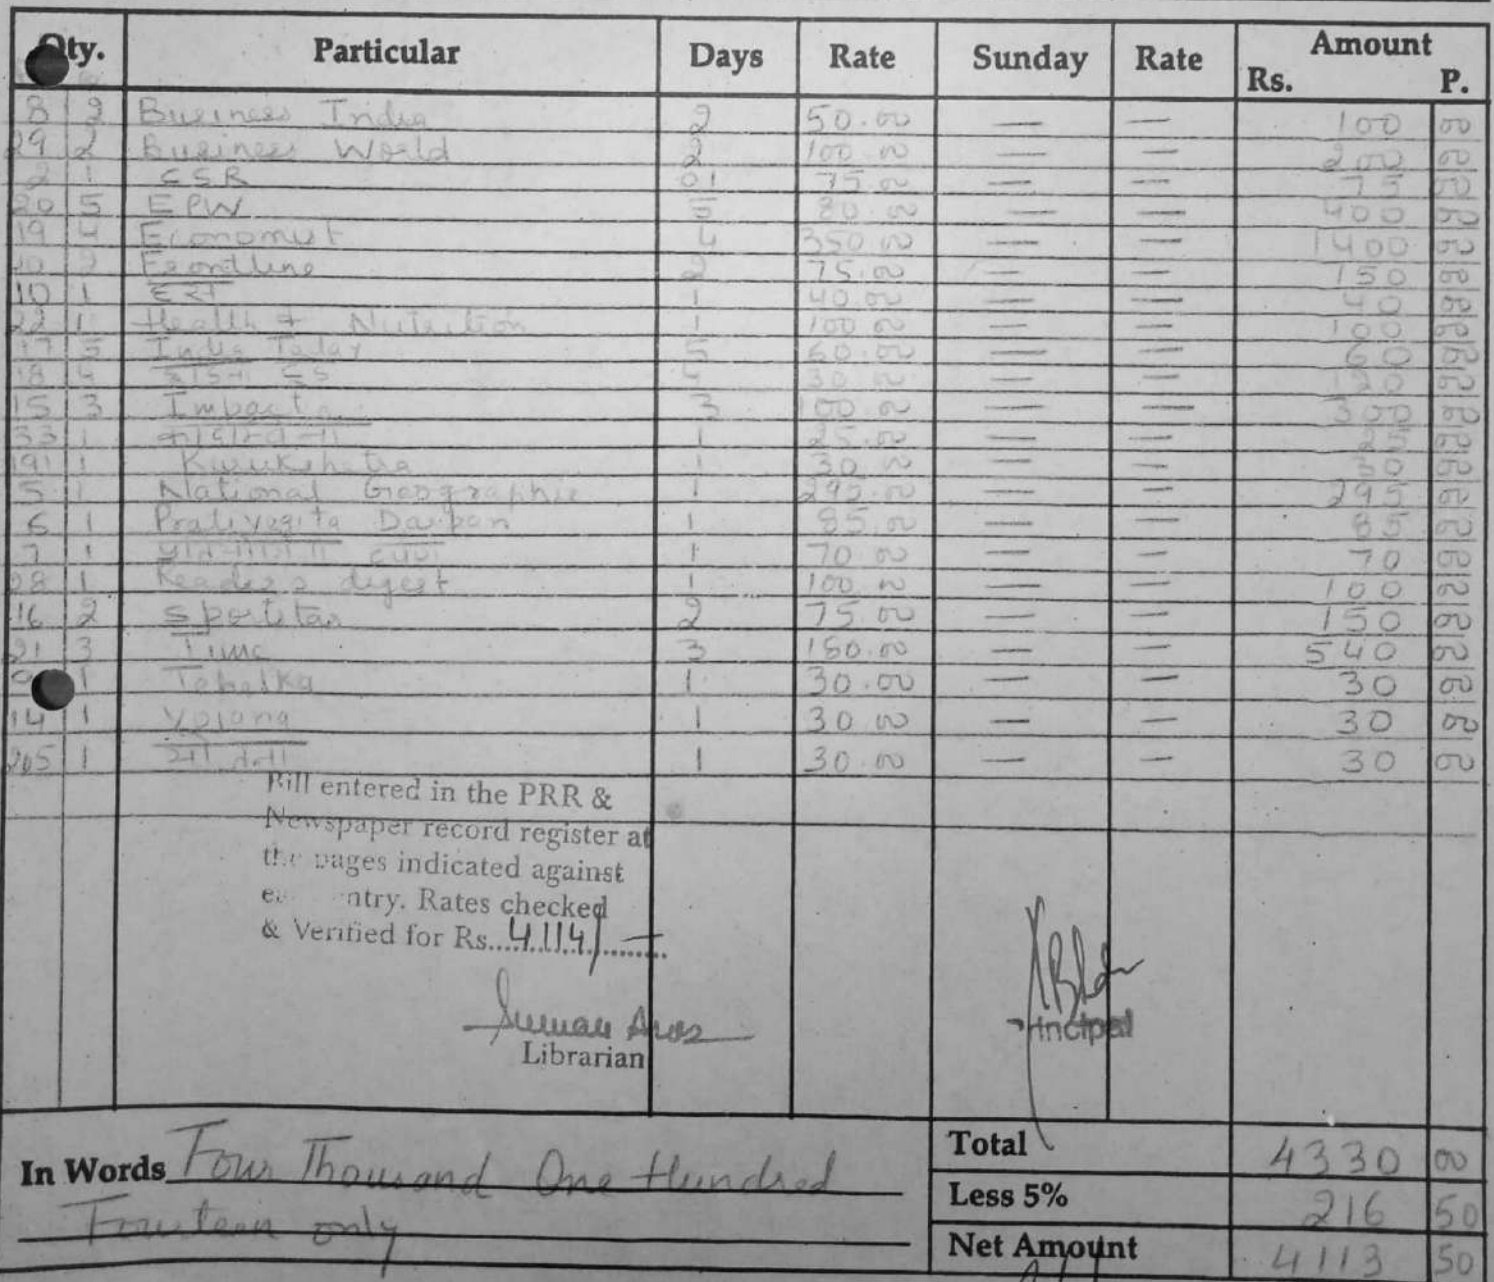 Qty. Particular Days Rate Sunday Rate Amount Rs. P.
8 2 Business India 2 50.00 — — 100 00
29 2 Business World 2 100.00 — — 200 00
2 1 CSR 01 75.00 — — 75 00
20 5 EPW 5 80.00 — — 400 00
19 4 Economist 4 350.00 — — 1400 00
2 Frontline 2 75.00 — — 150 00
10 1 हंस 1 40.00 — — 40 00
22 1 Health & Nutrition 1 100.00 — — 100 00
17 5 India Today 5 60.00 — — 00
18 30.00 — — 00
15 3 Impact 3 100.00 — — 300 00
33 1 1 25.00 — — 25 00
191 1 Kurukshetra 1 30.00 — — 30 00
5 1 National Geographic 1 295.00 — — 295 00
6 1 Prativogita Darpan 1 85.00 — — 85 00
7 1 1 70.00 — — 70 00
28 1 Reader's digest 1 100.00 — — 100 00
16 2 Sportstar 2 75.00 — — 150 00
21 3 Time 3 180.00 — — 540 00
1 Tehelka 1 30.00 — — 30 00
14 1 Yojana 1 30.00 — — 30 00
1 1 30.00 — — 30 00
Bill entered in the PRR &
Newspaper record register at
the pages indicated against
entry. Rates checked
& Verified for Rs....4114/-
Suman
Librarian
Principal
In Words Four Thousand One Hundred
Fourteen only
Total 4330 00
Less 5% 216 50
Net Amount 4113 50